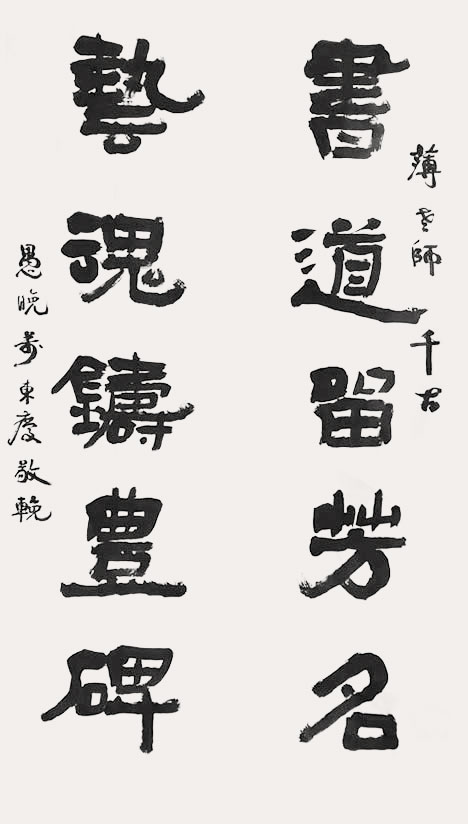 薄老師千古
書道留芳名
藝魂鑄豊碑
愚晚萬東慶敬輓